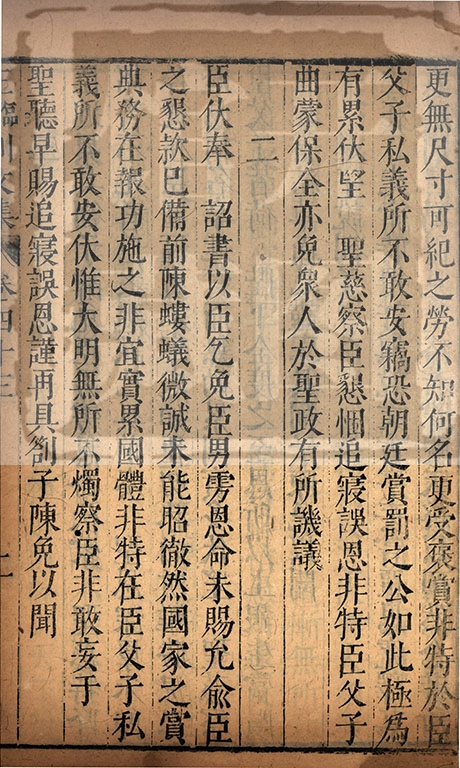 更無尺寸可紀之勞不知何名更受褒賞非特於臣
父子私義所不敢安竊恐朝廷賞罰之公如此極爲
有累伏望 聖慈察臣懇悃追寢誤恩非特臣父子
曲蒙保全亦免衆人於聖政有所譏議
二
臣伏奉 詔書以臣乞免臣男雱恩命未賜允俞臣
之懇款已備前陳螻蟻微誠未能昭徹然國家之賞
典務在報功施之非宜實累國體非特在臣父子私
義所不敢安伏惟大明無所不燭察臣非敢妄干
聖聽早賜追寢誤恩謹再具劄子陳免以聞
王臨川文集 卷四十三